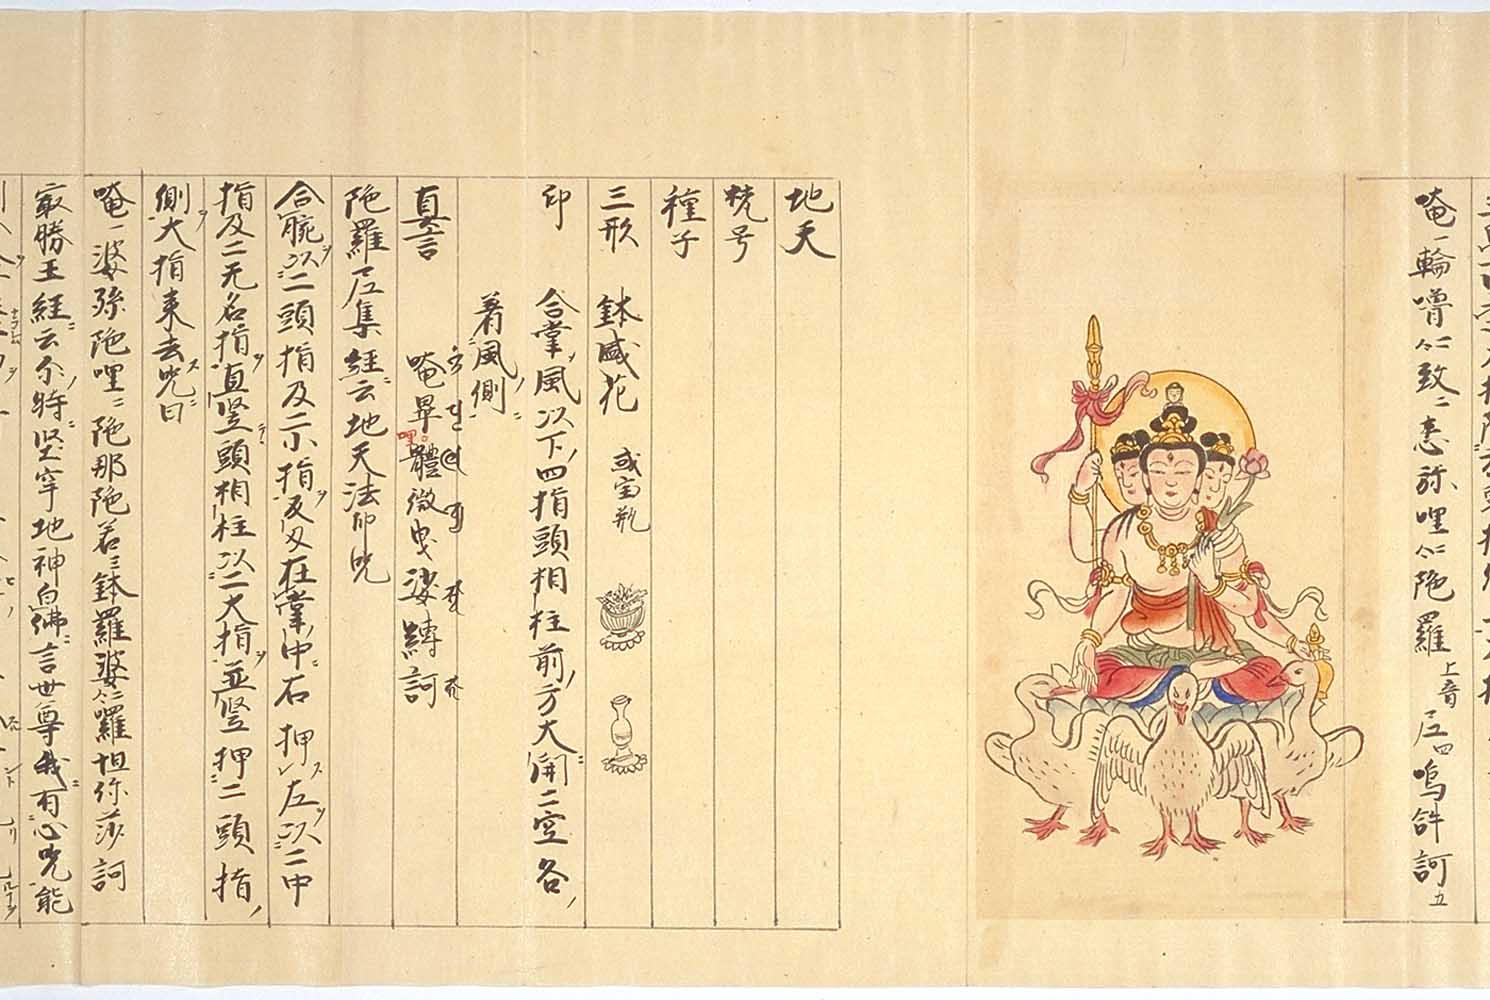 唵一輪噌𠆢二致二 悉弥哩𠆢二陀羅上音尼四嗚䛎訶五
地天
梵号
種子
三形 鉢盛花 或宝瓶
印 合掌風以下四指頭相柱前方大開二空各
着風側
真言 唵畢哩體微曵娑縛訶
陀羅尼集経云地天法印呪
合腕以二頭指及二小指反叉在掌中右押左以二中
指及二无名指直竪頭相柱以二大指並竪押二頭指
側大指来去呪曰
唵一婆弥陀哩二陀那陀若三鉢羅婆𠆢二羅怛你莎訶
最勝王経云尓時堅牢地神白佛言世尊我有心呪能